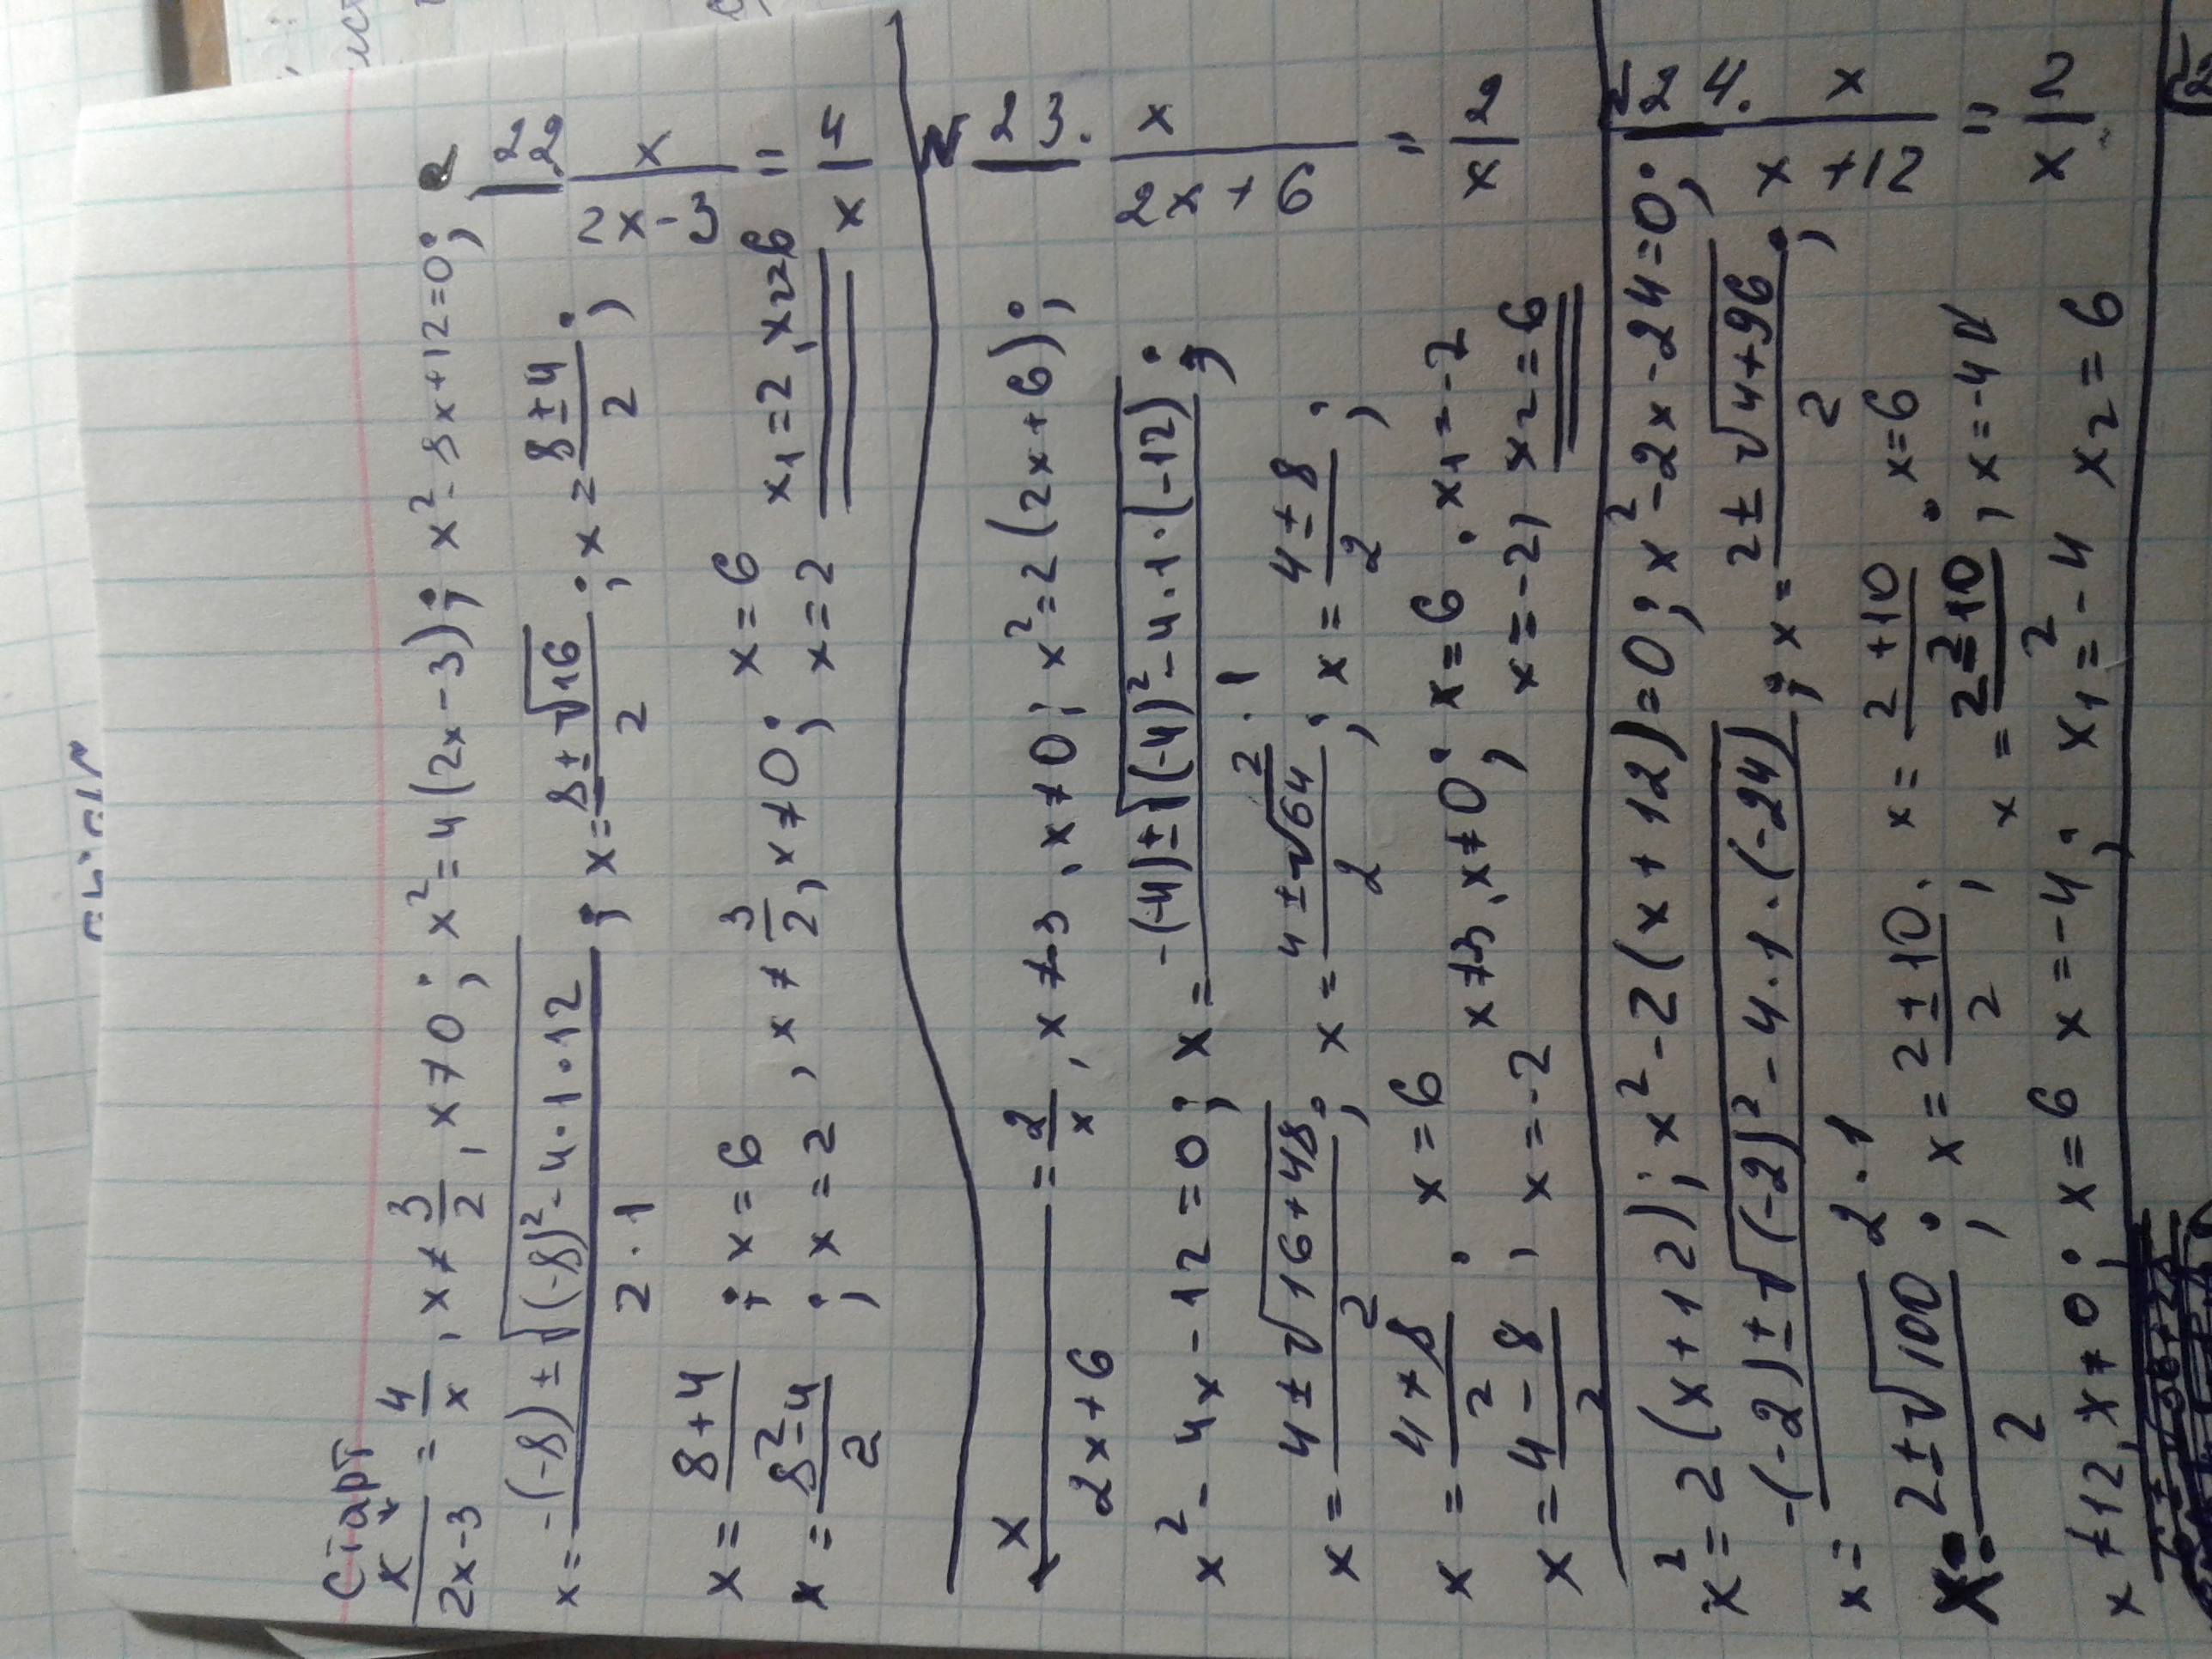 Старт
x/(2x-3) = 4/x, x≠3/2, x≠0; x²=4(2x-3); x²-8x+12=0;
x = (-(-8)±√((-8)²-4·1·12))/(2·1); x = (8±√16)/2; x = (8±4)/2;
x = (8+4)/2; x=6 x=6
x = (8-4)/2; x=2, x≠3/2, x≠0; x=2 x₁=2, x₂=6
|22.
x/(2x-3) = 4/x
x/(2x+6) = 2/x, x≠-3, x≠0; x²=2(2x+6);
x²-4x-12=0; x = (-(-4)±√((-4)²-4·1·(-12)))/(2·1);
x = (4±√(16+48))/2; x = (4±√64)/2; x = (4±8)/2;
x = (4+8)/2; x=6 x=6
x = (4-8)/2, x=-2 x≠-3, x≠0; x=-2, x₁=-2 x₂=6
|23.
x/(2x+6) = 2/x
x²=2(x+12); x²-2(x+12)=0; x²-2x-24=0;
x = (-(-2)±√((-2)²-4·1·(-24)))/(2·1); x = (2±√(4+96))/2;
x = (2±√100)/2; x = (2±10)/2, x = (2+10)/2; x=6
x = (2-10)/2, x=-4
x≠-12, x≠0; x=6 x=-4; x₁=-4 x₂=6
|24.
x/(x+12) = 2/x